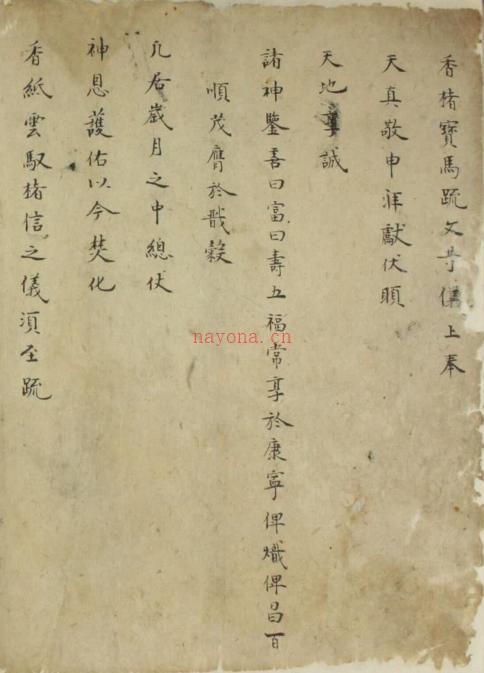 香楮寶馬䟽文等儀上奉
天真敬申泮獻伏願
天地鑒誠
諸神鑒喜曰富曰壽五福常享於康寧俾熾俾昌百
順茂膺於戩穀
凡居歲月之中總伏
神恩護佑以今焚化
香紙雲馭楮信之儀湏至䟽
nayona.cn